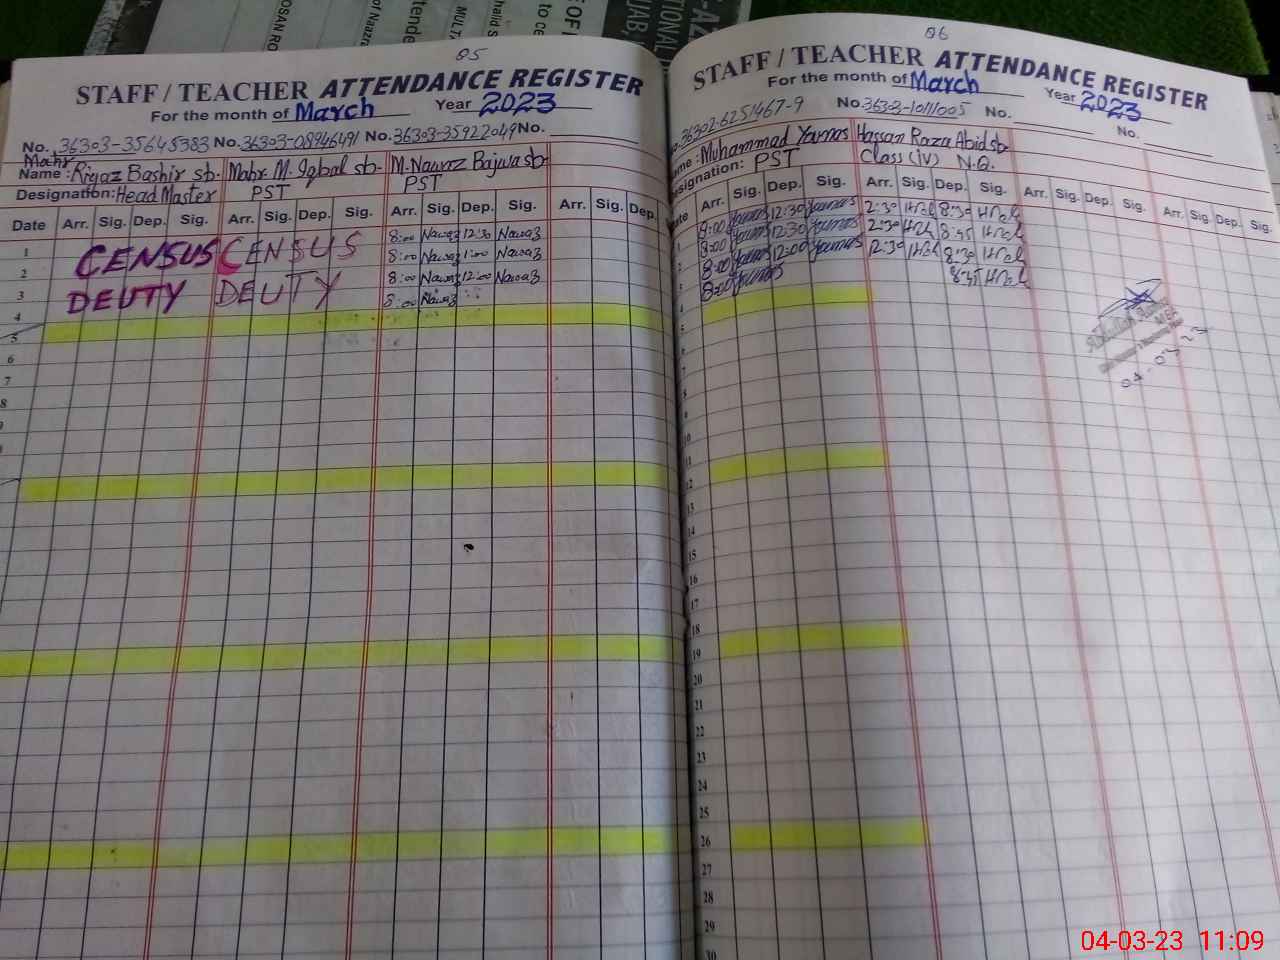 OSAN RO
of Naazra
MULT
halid S
ttende
to ce
E OF
JAB,
TIONAL
-AZ
05
STAFF / TEACHER ATTENDANCE REGISTER
For the month of March Year 2023
No. 36303-35645383 No. 36303-08946491 No. 36303-35922049 No.
Mahr
Name : Riyaz Bashir sb. Mahr M. Iqbal sb. M. Nawaz Bajwa sb
Designation: Head Master PST PST
Date Arr. Sig. Dep. Sig. Arr. Sig. Dep. Sig. Arr. Sig. Dep. Sig. Arr. Sig. Dep.
1 CENSUS CENSUS 8:00 Nawaz 12:30 Nawaz
2 8:00 Nawaz 1:00 Nawaz
3 DEUTY DEUTY 8:00 Nawaz 12:00 Nawaz
4 8:00 Nawaz
5
6
7
8
06
STAFF / TEACHER ATTENDANCE REGISTER
For the month of March Year 2023
36302-6251467-9 No 36303-10111005 No. No.
Name : Muhammad Younas Hassan Raza Abid sb
Designation: PST Class (iv) N.Q.
Date Arr. Sig. Dep. Sig. Arr. Sig. Dep. Sig. Arr. Sig. Dep. Sig. Arr. Sig. Dep. Sig.
1 8:00 Younas 12:30 Younas 2:30 8:30
2 8:00 Younas 12:30 Younas 2:30 8:45
3 8:00 Younas 12:00 Younas 12:30 8:30
4 8:00 Younas 8:45
5
6
7
8
9
10
11
12
13
14
15
16
17
18
19
20
21
22
23
24
25
26
27
28
29
30
04-03-23
04-03-23 11:09